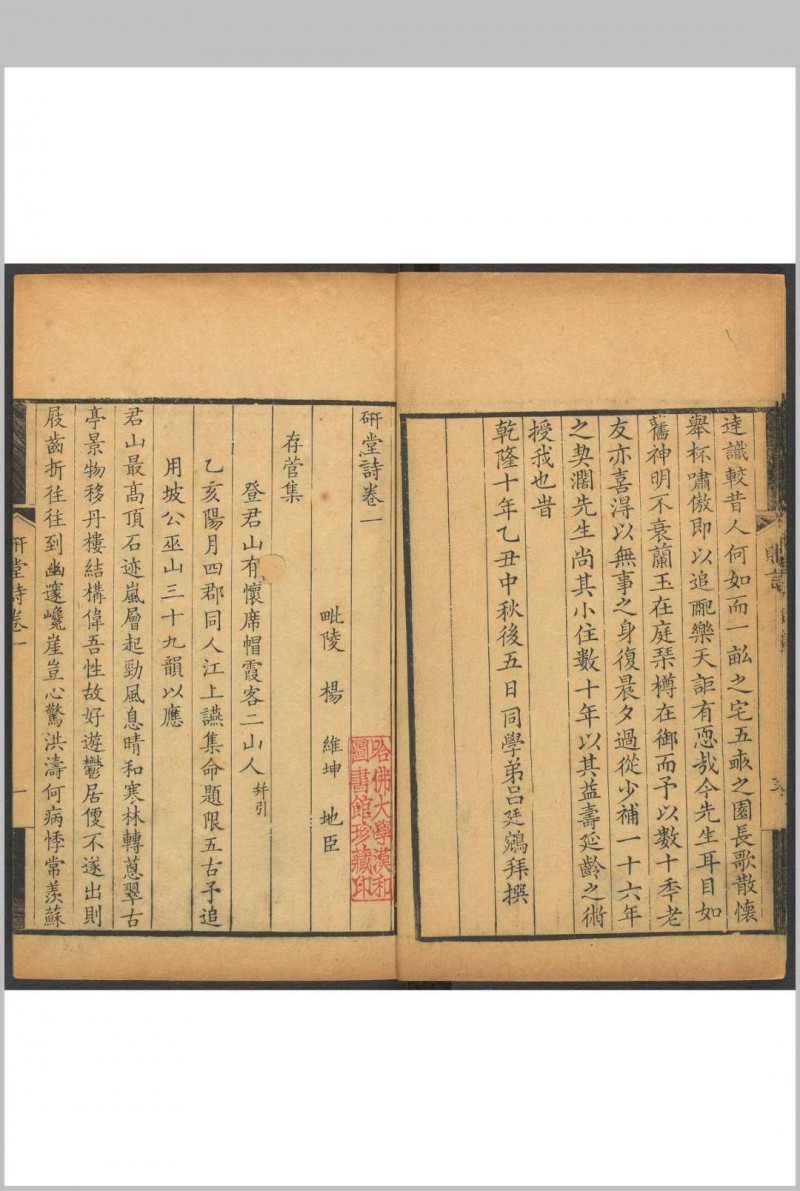 達識較昔人何如而一畝之宅五畝之園長歌散懷
舉杯嘯傲即以追配樂天詎有恧哉今先生耳目如
舊神明不衰蘭玉在庭琴樽在御而予以數十年老
友亦喜得以無事之身復晨夕過從少補一十六年
之契濶先生尚其小住數十年以其益壽延齡之術
授我也旹
乾隆十年乙丑中秋後五日同學弟呂廷鷁拜撰
研堂詩卷一
毗陵 楊 維坤 地臣
存菅集
登君山有懷席帽霞客二山人 幷引
乙亥陽月四郡同人江上讌集命題限五古予追
用坡公巫山三十九韻以應
君山最高頂石迹嵐層起勁風息晴和寒林轉蔥翠古
亭景物移丹樓結構偉吾性故好遊鬱居便不遂出則
屐齒折往往到幽邃巉崖豈心驚洪濤何病悸常羨蘇
研堂詩卷一
一
哈佛大學漢和
圖書館珍藏印